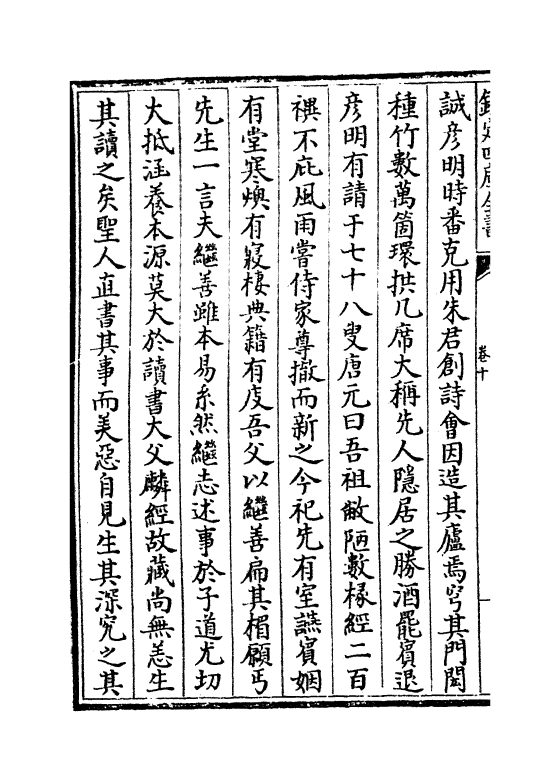 欽定四庫全書
卷十
誠彥明時番克用朱君創詩會因造其廬焉穹其門閎
種竹數萬箇環拱几席大稱先人隱居之勝酒罷賓退
彥明有請于七十八叟唐元曰吾祖敝陋數椽經二百
禩不庇風雨嘗侍家尊撤而新之今祀先有室讌賓姻
有堂寒燠有寢棲典籍有庋吾父以繼善扁其楣願丐
先生一言夫繼善雖本易系然繼志述事於子道尤切
大抵涵養本源莫大於讀書大父麟經故藏尚無恙生
其讀之矣聖人直書其事而美惡自見生其深究之其